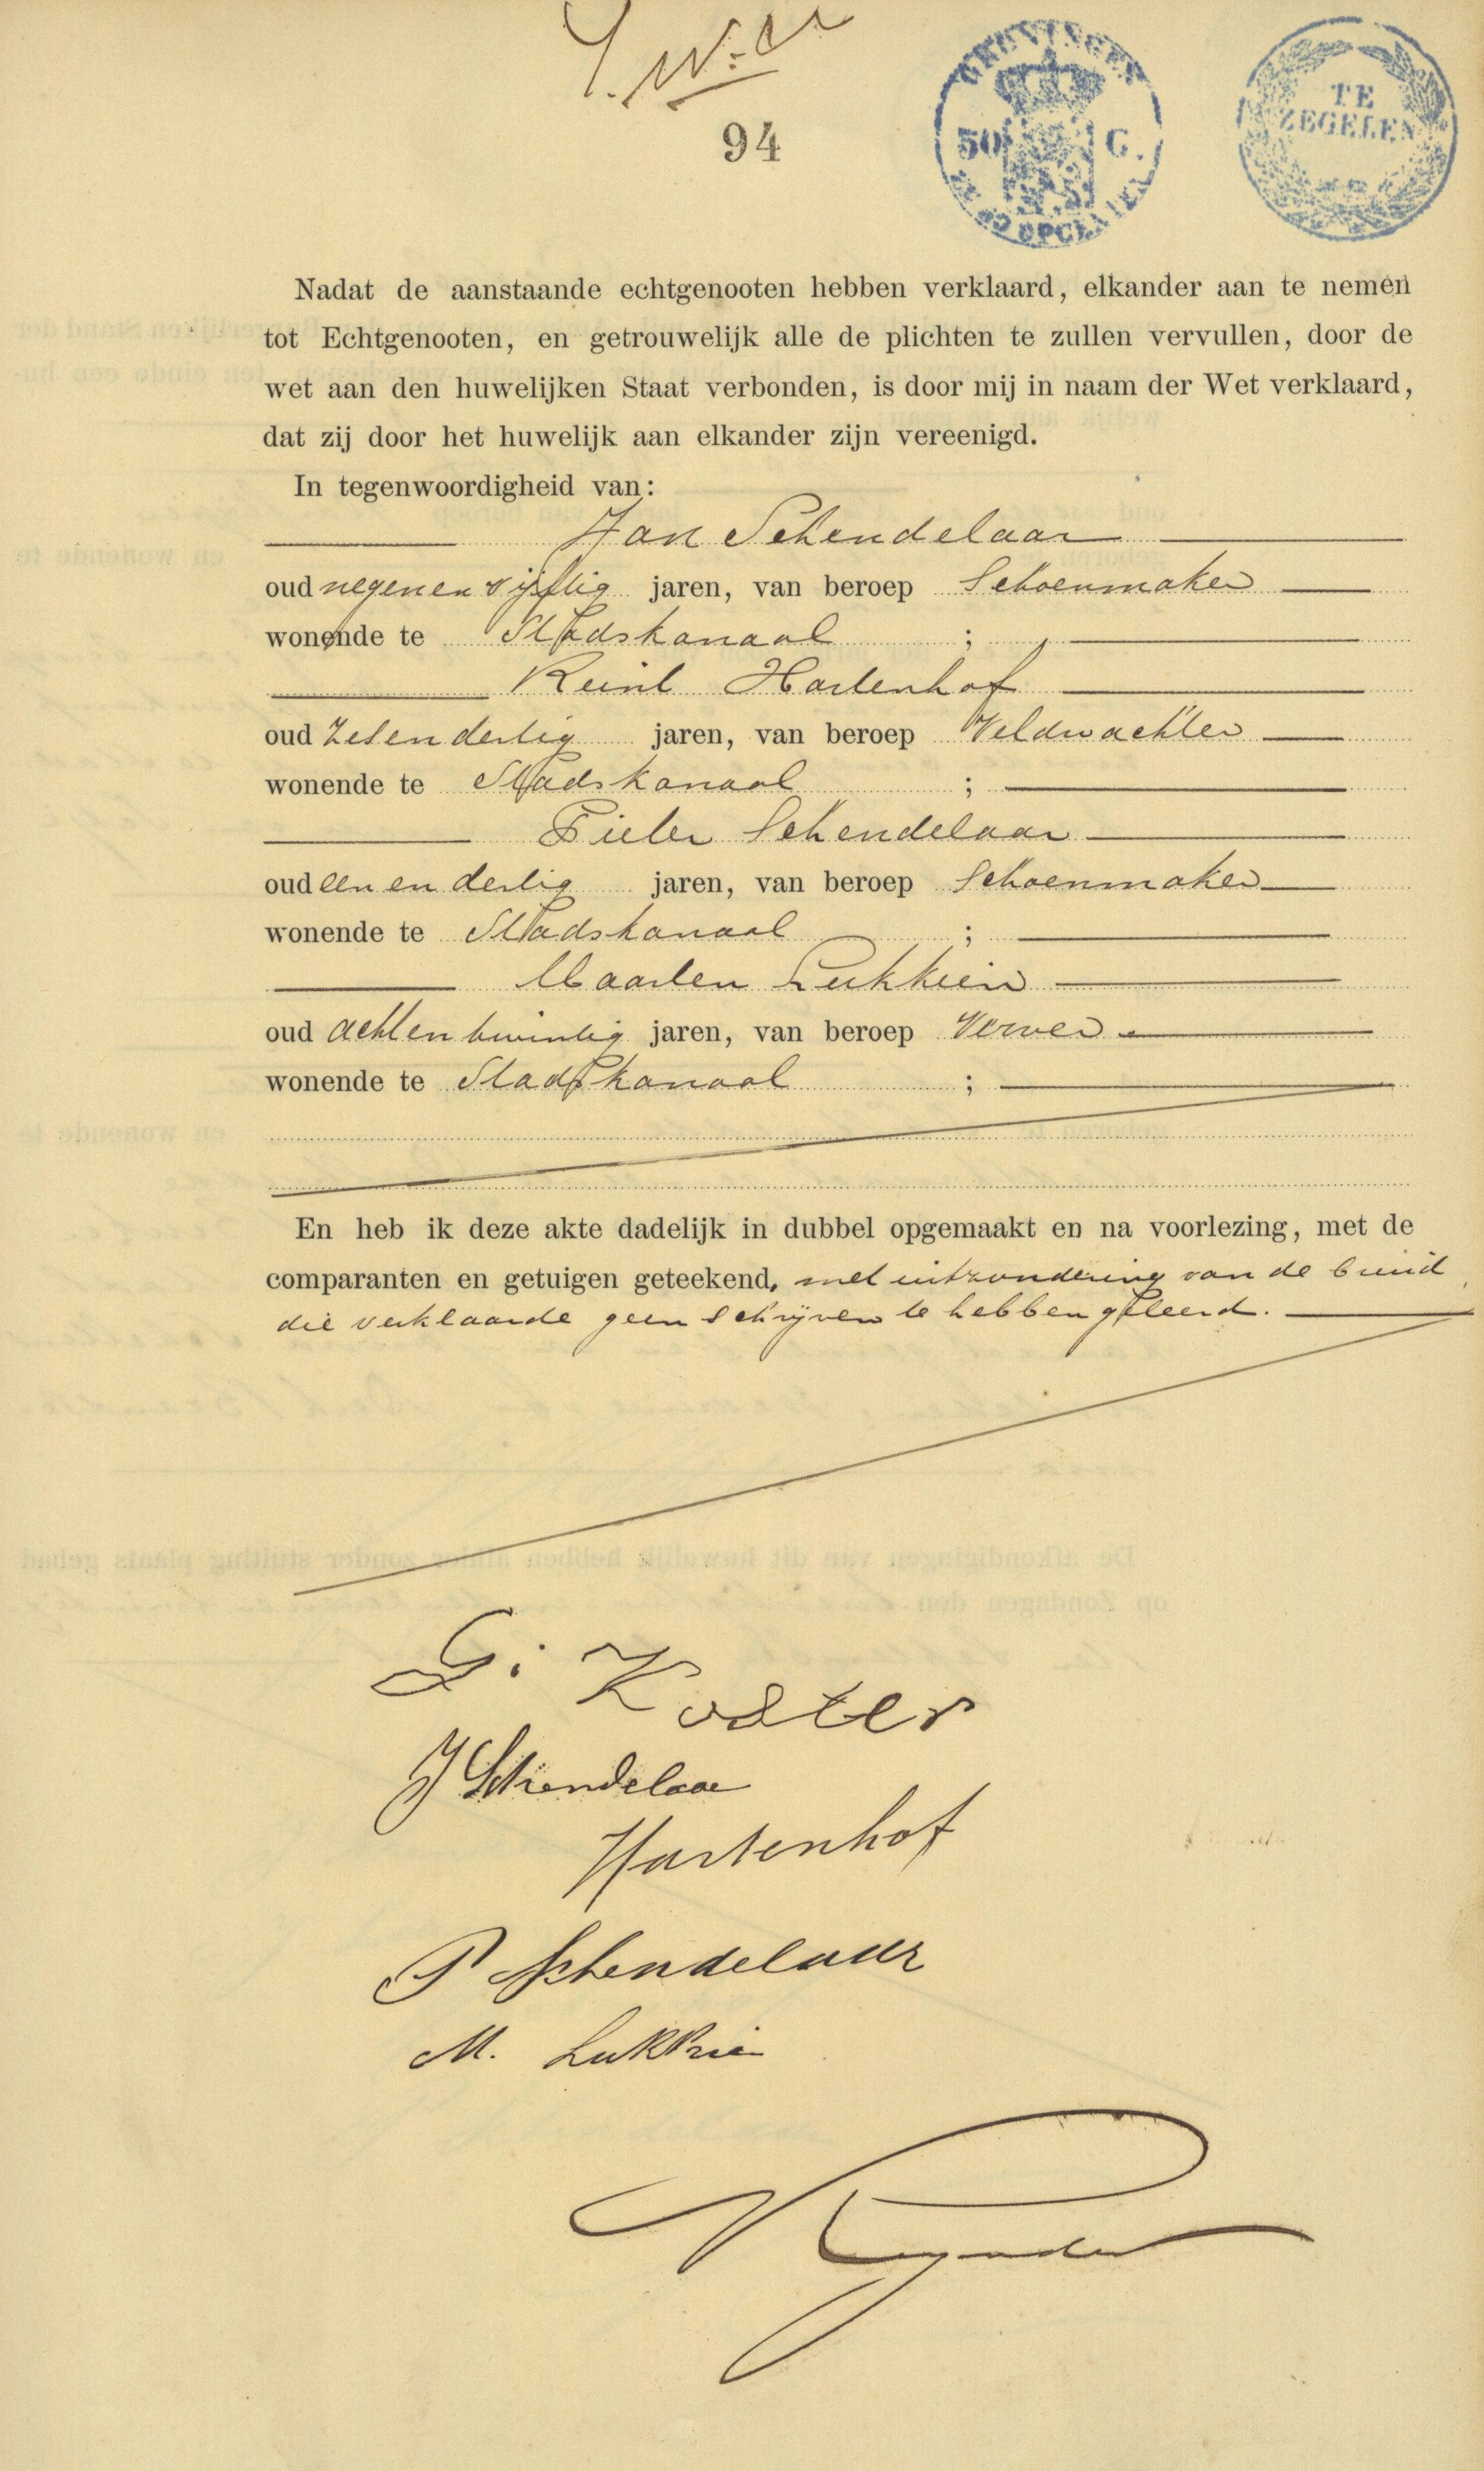 94
GRONINGEN
50 C.
TE
ZEGELEN
Nadat de aanstaande echtgenooten hebben verklaard, elkander aan te nemen
tot Echtgenooten, en getrouwelijk alle de plichten te zullen vervullen, door de
wet aan den huwelijken Staat verbonden, is door mij in naam der Wet verklaard,
dat zij door het huwelijk aan elkander zijn vereenigd.
In tegenwoordigheid van:
Jan Schendelaar
oud negenenvijftig jaren, van beroep Schoenmaker
wonende te Stadskanaal ;
Reint Hartenhof
oud Zesendertig jaren, van beroep Veldwachter
wonende te Stadskanaal ;
Pieter Schendelaar
oud eenendertig jaren, van beroep Schoenmaker
wonende te Stadskanaal ;
Maarten Lukkien
oud achtentwintig jaren, van beroep Verver
wonende te Stadskanaal ;
En heb ik deze akte dadelijk in dubbel opgemaakt en na voorlezing, met de
comparanten en getuigen geteekend, met uitzondering van de bruid
die verklaarde geen schrijven te hebben geleerd.
G. Koster
J Schendelaar
Hartenhof
P Schendelaar
M. Lukkien